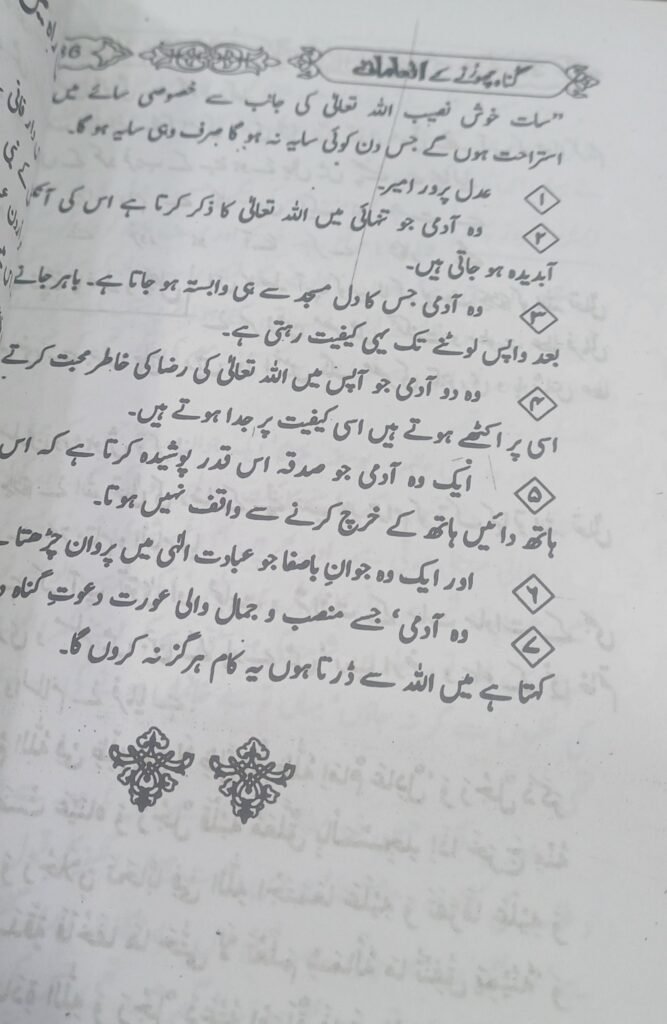 گناہ چھوڑنے کے انعامات
"سات خوش نصیب اللہ تعالیٰ کی جانب سے خصوصی سائے میں
استراحت ہوں گے جس دن کوئی سایہ نہ ہو گا صرف وہی سایہ ہو گا۔
۱ عدل پرور امیر۔
۲ وہ آدمی جو تنہائی میں اللہ تعالیٰ کا ذکر کرتا ہے اس کی
آبدیدہ ہو جاتی ہیں۔
۳ وہ آدمی جس کا دل مسجد سے ہی وابستہ ہو جاتا ہے۔ باہر جانے
بعد واپس لوٹنے تک یہی کیفیت رہتی ہے۔
۴ وہ دو آدمی جو آپس میں اللہ تعالیٰ کی رضا کی خاطر محبت کرتے
اسی پر اکٹھے ہوتے ہیں اسی کیفیت پر جدا ہوتے ہیں۔
۵ ایک وہ آدمی جو صدقہ اس قدر پوشیدہ کرتا ہے کہ اس
ہاتھ دائیں ہاتھ کے خرچ کرنے سے واقف نہیں ہوتا۔
۶ اور ایک وہ جوانِ باصفا جو عبادت الٰہی میں پروان چڑھتا
۷ وہ آدمی، جسے منصب و جمال والی عورت دعوتِ گناہ
کہتا ہے میں اللہ سے ڈرتا ہوں یہ کام ہرگز نہ کروں گا۔